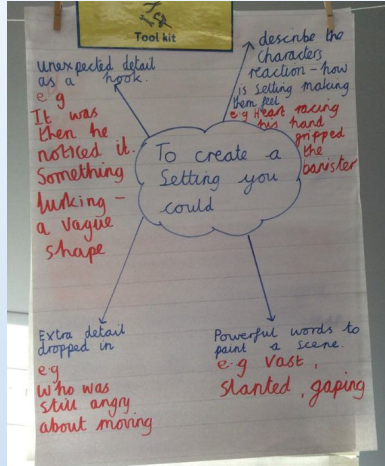 Tool kit
unexpected detail
as a hook.
e g
It was
then he
noticed it.
Something
lurking -
a vague
shape
describe the
characters
reaction - how
is setting making
them feel
e g Heart racing
his hand
gripped
the
banister
To create a
Setting you
could
Extra detail
dropped in
eg
Who was
still angry
about moving
Powerful words to
paint a scene.
e.g Vast,
slanted, gaping